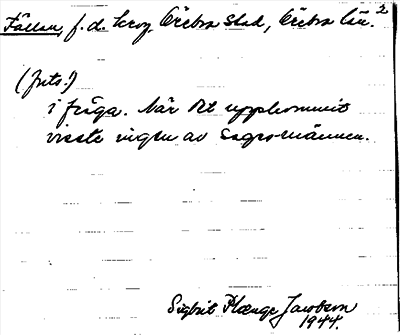 Fällan, f.d. krog, Örebro stad, Örebro län. 2
(forts.)
i fråga. När det uppkommit
visste ingen av sagesmännen.
Sigbrit Plænge Jacobson
1944.